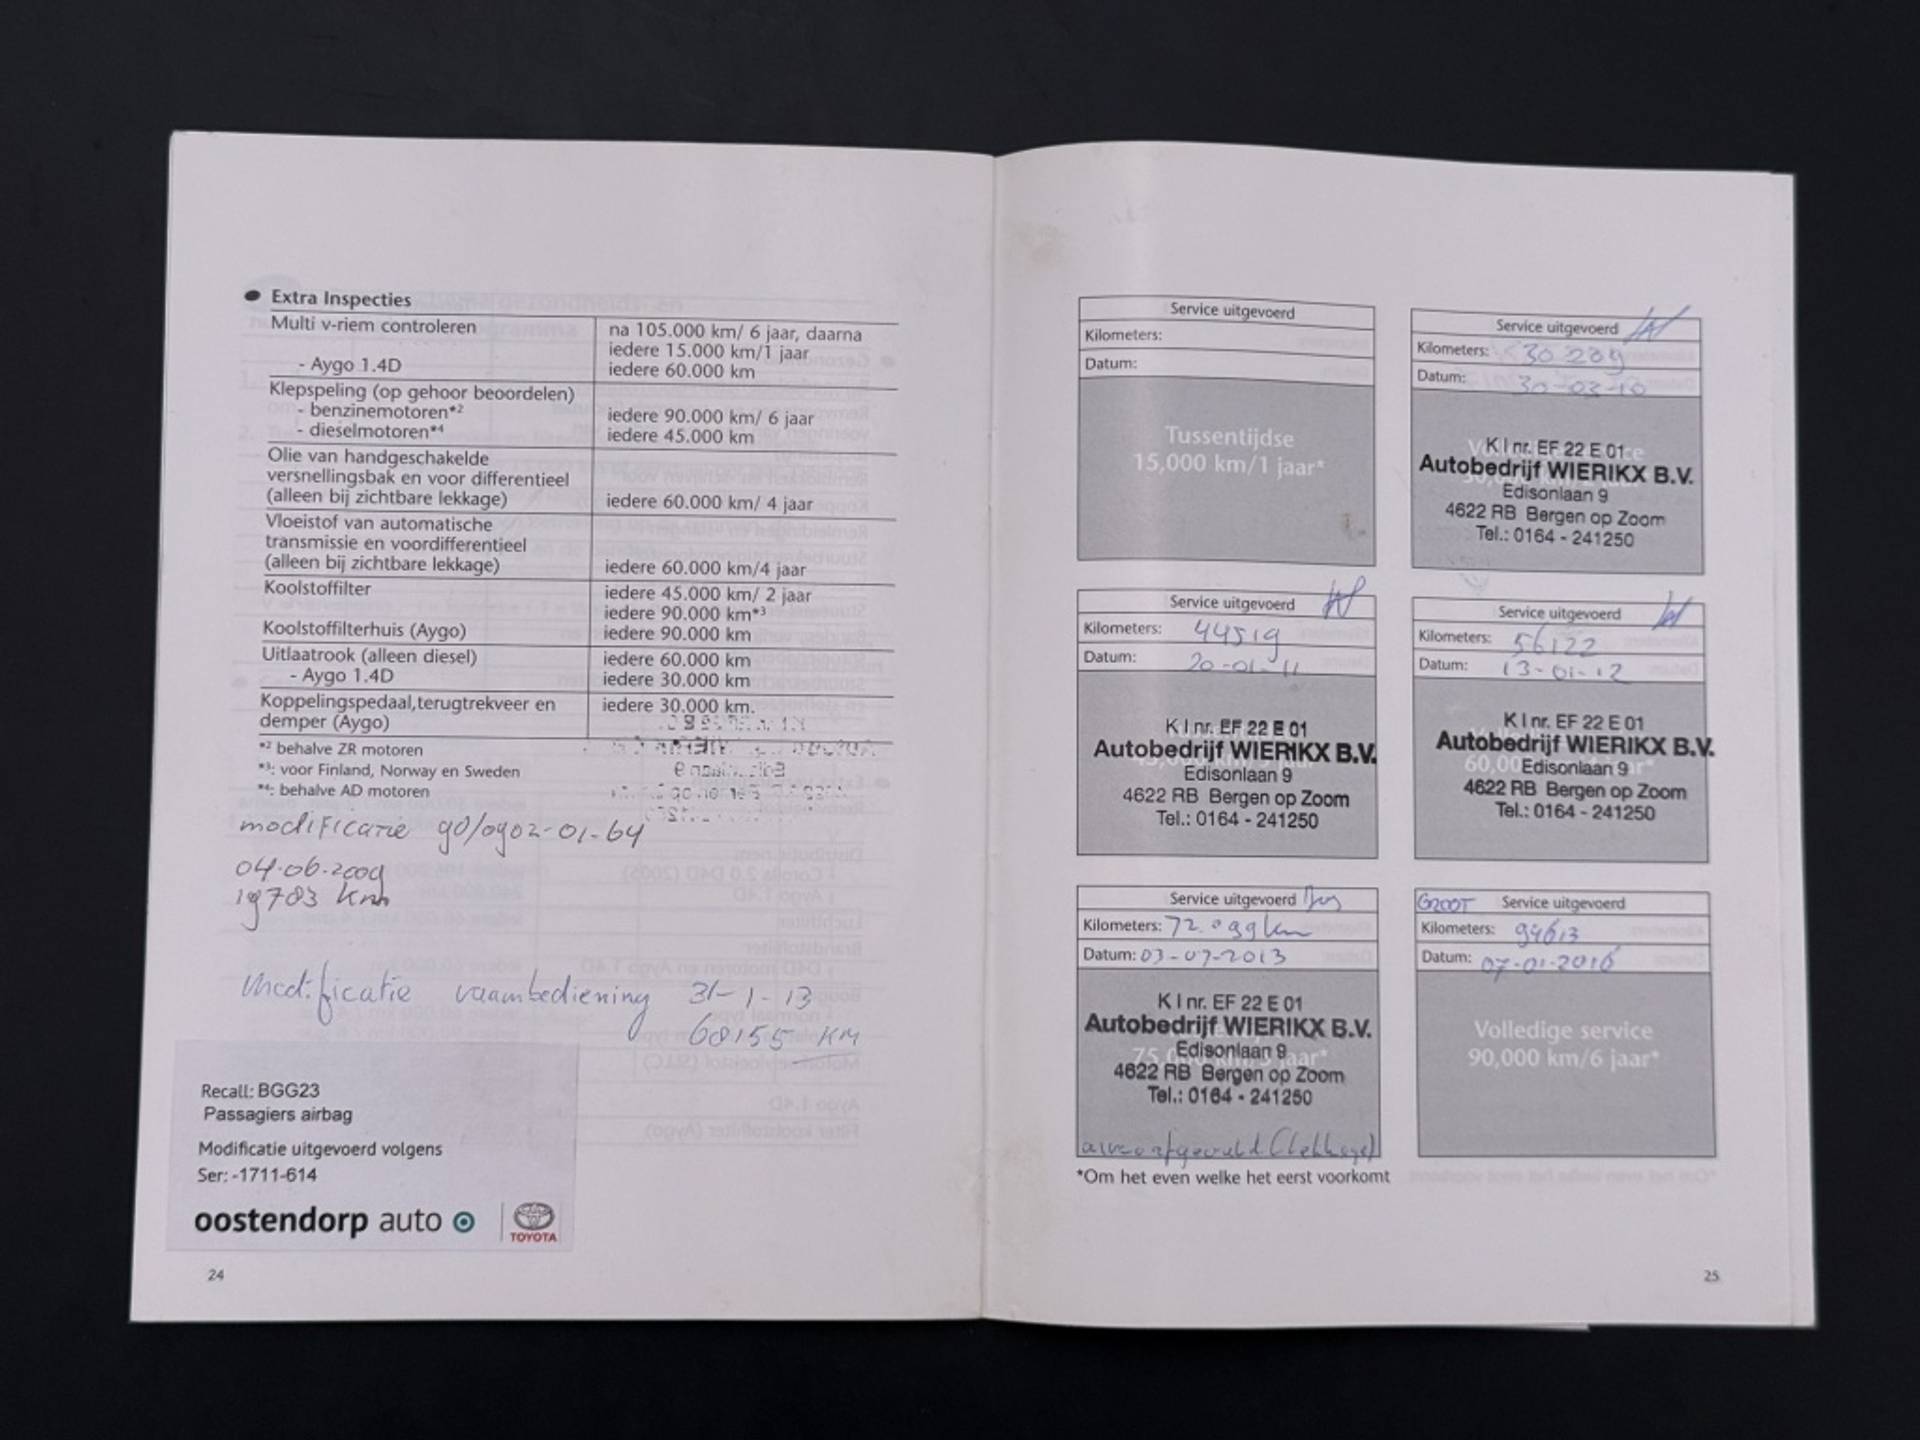 Extra Inspecties
Multi v-riem controleren na 105.000 km/ 6 jaar, daarna
iedere 15.000 km/1 jaar
- Aygo 1.4D iedere 60.000 km
Klepspeling (op gehoor beoordelen)
- benzinemotoren*2 iedere 90.000 km/ 6 jaar
- dieselmotoren*4 iedere 45.000 km
Olie van handgeschakelde
versnellingsbak en voor differentieel
(alleen bij zichtbare lekkage) iedere 60.000 km/ 4 jaar
Vloeistof van automatische
transmissie en voordifferentieel
(alleen bij zichtbare lekkage) iedere 60.000 km/4 jaar
Koolstoffilter iedere 45.000 km/ 2 jaar
iedere 90.000 km*3
Koolstoffilterhuis (Aygo) iedere 90.000 km
Uitlaatrook (alleen diesel) iedere 60.000 km
- Aygo 1.4D iedere 30.000 km
Koppelingspedaal,terugtrekveer en iedere 30.000 km.
demper (Aygo)
*2 behalve ZR motoren
*3: voor Finland, Norway en Sweden
*4: behalve AD motoren
modificatie 90/0902-01-64
04-06-2009
19783 Km
Modificatie raambediening 31-1-13
68155 KM
Recall: BGG23
Passagiers airbag
Modificatie uitgevoerd volgens
Ser: -1711-614
oostendorp auto TOYOTA
24
Service uitgevoerd
Kilometers:
Datum:
Tussentijdse
15,000 km/1 jaar*
Service uitgevoerd
Kilometers: 30209
Datum: 30-03-10
K I nr. EF 22 E 01
Autobedrijf WIERIKX B.V.
Edisonlaan 9
4622 RB Bergen op Zoom
Tel.: 0164 - 241250
Service uitgevoerd
Kilometers: 44519
Datum: 20-01-11
K I nr. EF 22 E 01
Autobedrijf WIERIKX B.V.
Edisonlaan 9
4622 RB Bergen op Zoom
Tel.: 0164 - 241250
Service uitgevoerd
Kilometers: 56122
Datum: 13-01-12
K I nr. EF 22 E 01
Autobedrijf WIERIKX B.V.
60,00 Edisonlaan 9 ar*
4622 RB Bergen op Zoom
Tel.: 0164 - 241250
Service uitgevoerd
Kilometers: 72.099 km
Datum: 03-07-2013
K I nr. EF 22 E 01
Autobedrijf WIERIKX B.V.
Edisonlaan 9
75,000 km/ jaar*
4622 RB Bergen op Zoom
Tel.: 0164 - 241250
GROOT Service uitgevoerd
Kilometers: 94613
Datum: 07-01-2016
Volledige service
90,000 km/6 jaar*
*Om het even welke het eerst voorkomt
25